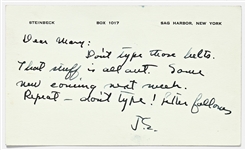 STEINBECK BOX 1017 SAG HARBOR, NEW YORK
Dear Mary:
Don't type those belts.
That stuff is all out. Some
new coming next week.
Repeat — don't type! Letter follows
J.S.